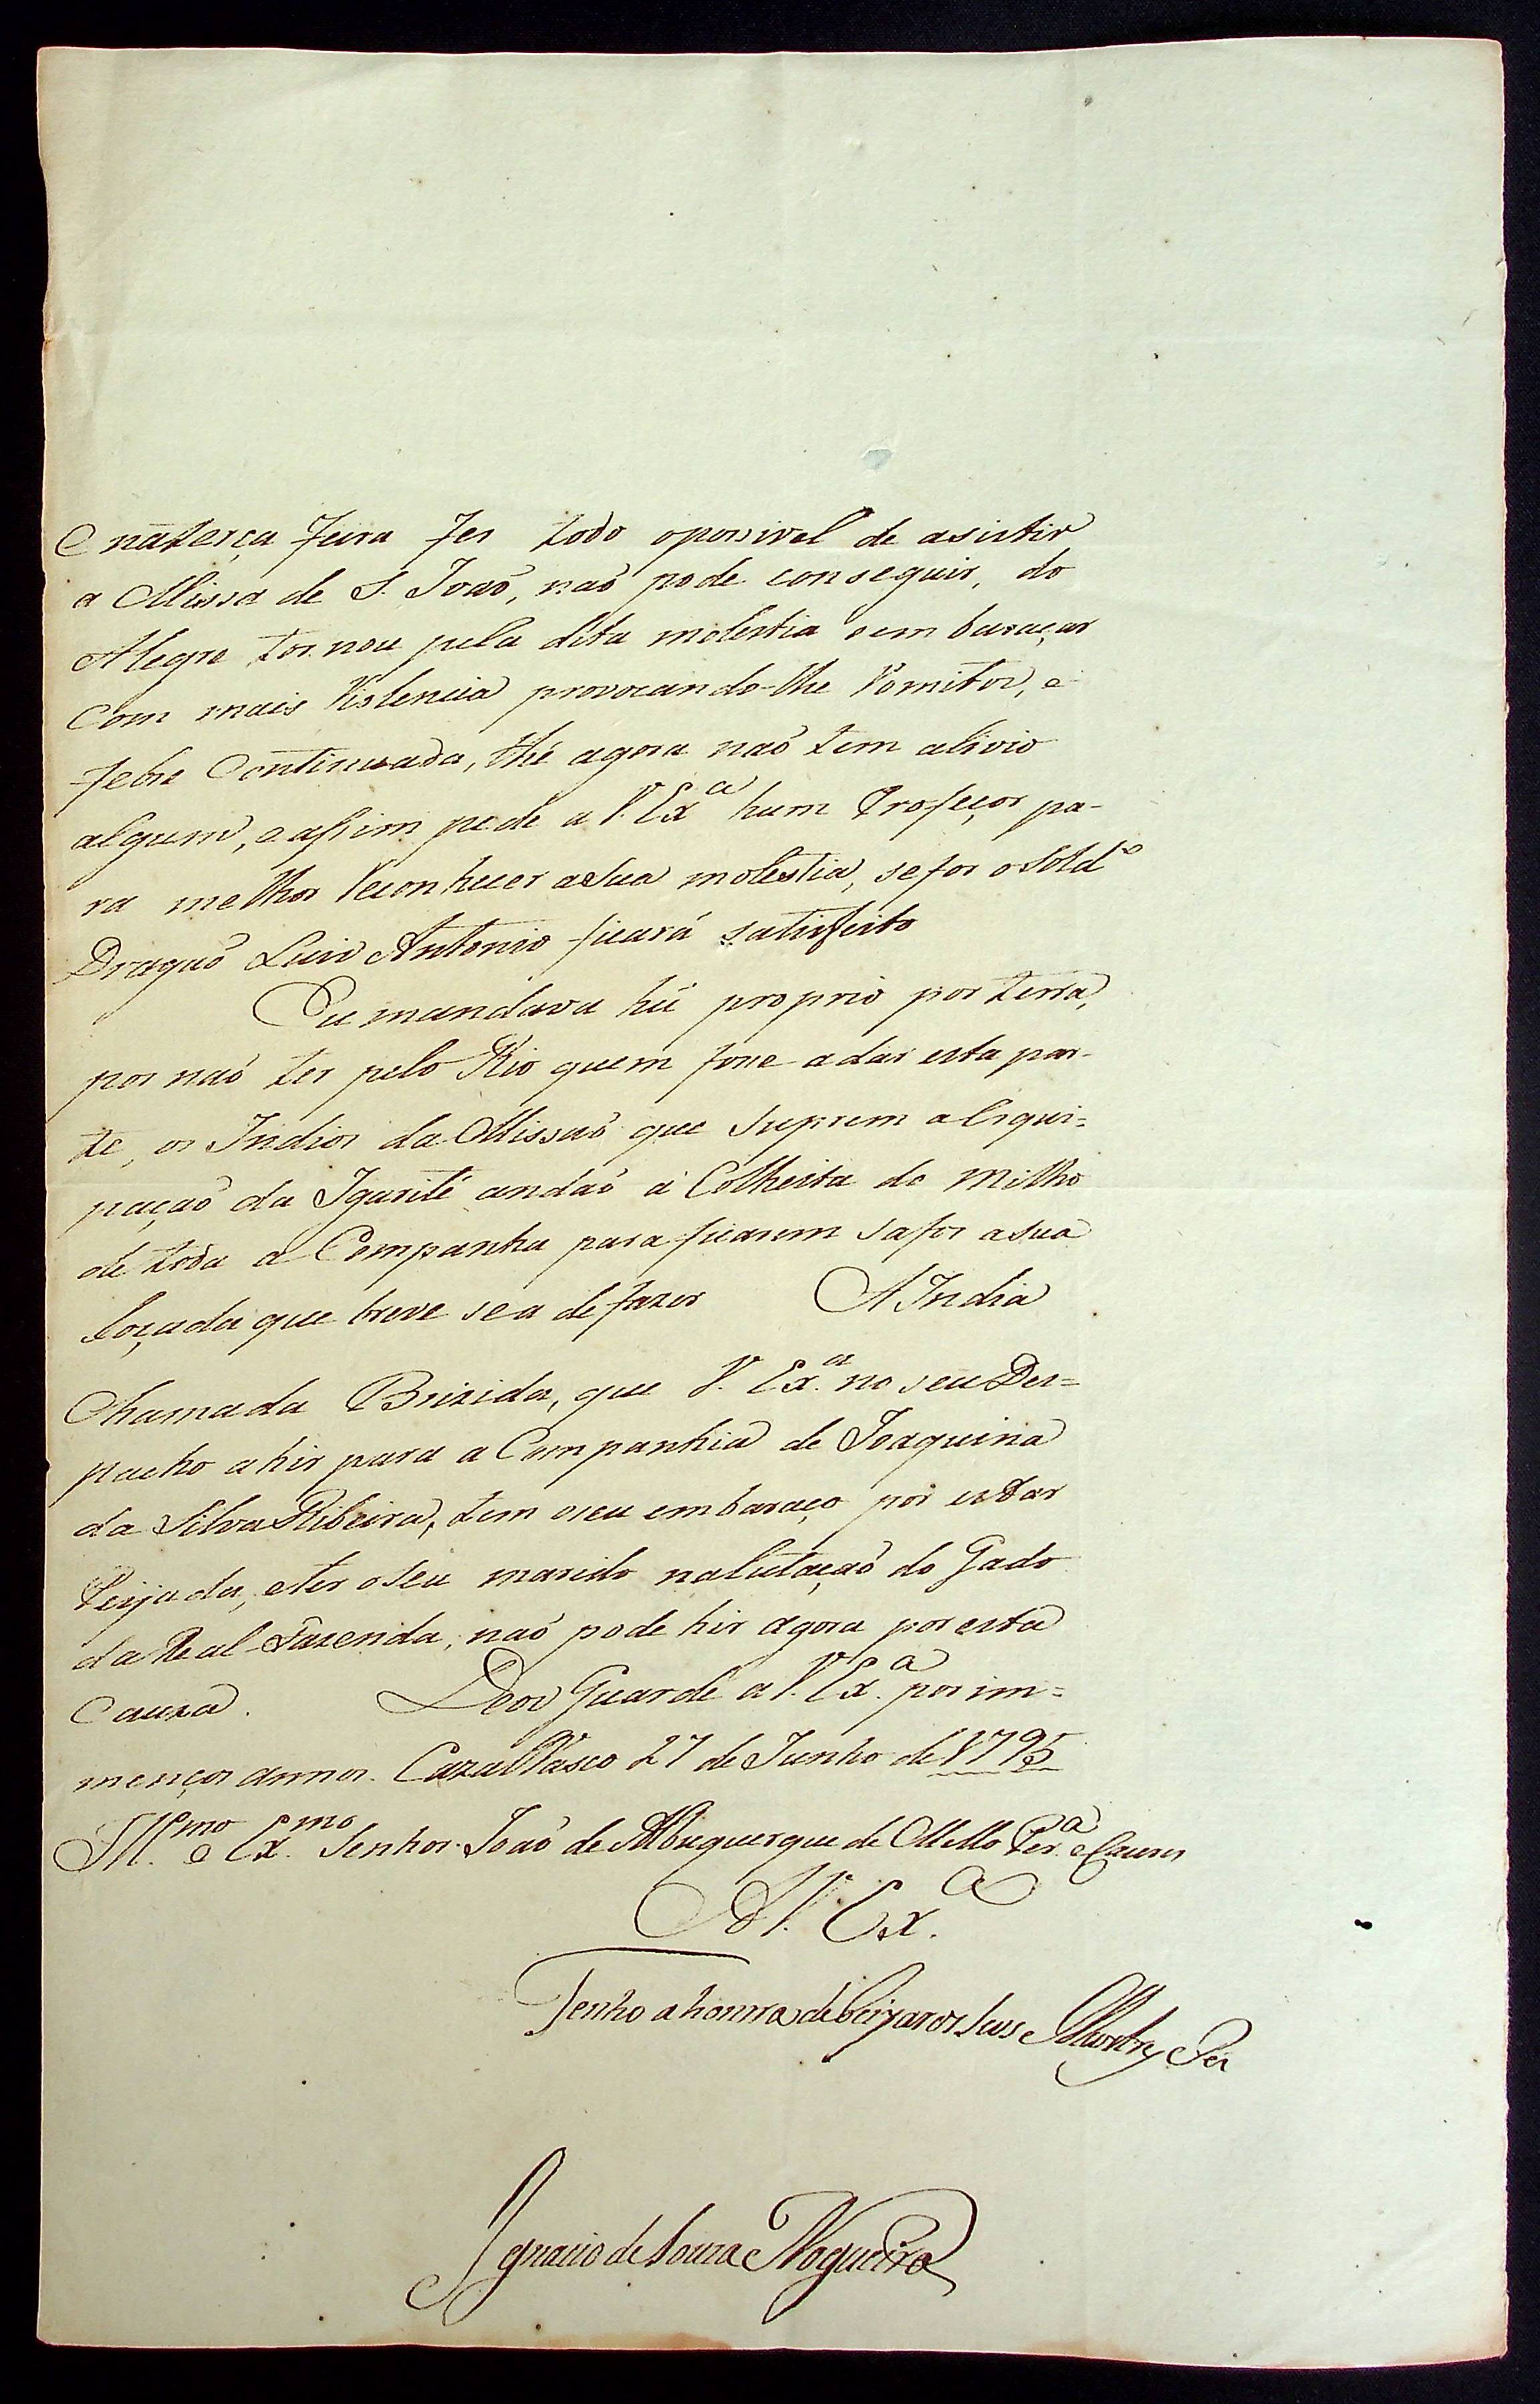 E naterça feira fes todo opossivel de asistir
a Missa de S. Joaõ, naõ pode conseguir, do
Alegre tornou pela dita molestia oembaraçar
Com mais Violencia provocando-lhe Vomitos, e
febre Continuada, thé agora naõ tem alivio
algum, e assim pede a V. Exª hum Profeçor pa-
ra melhor Reconhecer asua molestia, se for o Soldº
Dragaõ Luis Antonio ficará satisfeito
Eu mandava hú proprio por terra,
por naõ ter pelo Rio quem fosse adar esta par-
te, os Indios da Missaõ que suprem a Esqui-
paçaõ da Igarité andaõ á Colheita do Milho
de toda a Companha para ficarem safos a sua
Roçada que breve sea de fazer A India
Chamada Brizida, que V. Exª no seu Des=
pacho a hir para a Companhia de Joaquina
da Silva Ribeira, tem oseu embaraço por estar
Pejada, eter oseu marido na Cutaçaõ do Gado
da Real Fazenda, naõ pode hir agora por esta
Cauza. Deos Guarde a V. Exª por im=
menços annos. Cazal Vasco 27 de Junho de 1795
Illmo e Exmo Senhor Joaõ de Albuquerque de Mello Perª e Caceres
A V. Exª
Tenho ahonra de beijar os seus Pes
Ignacio de Souza Nogueira